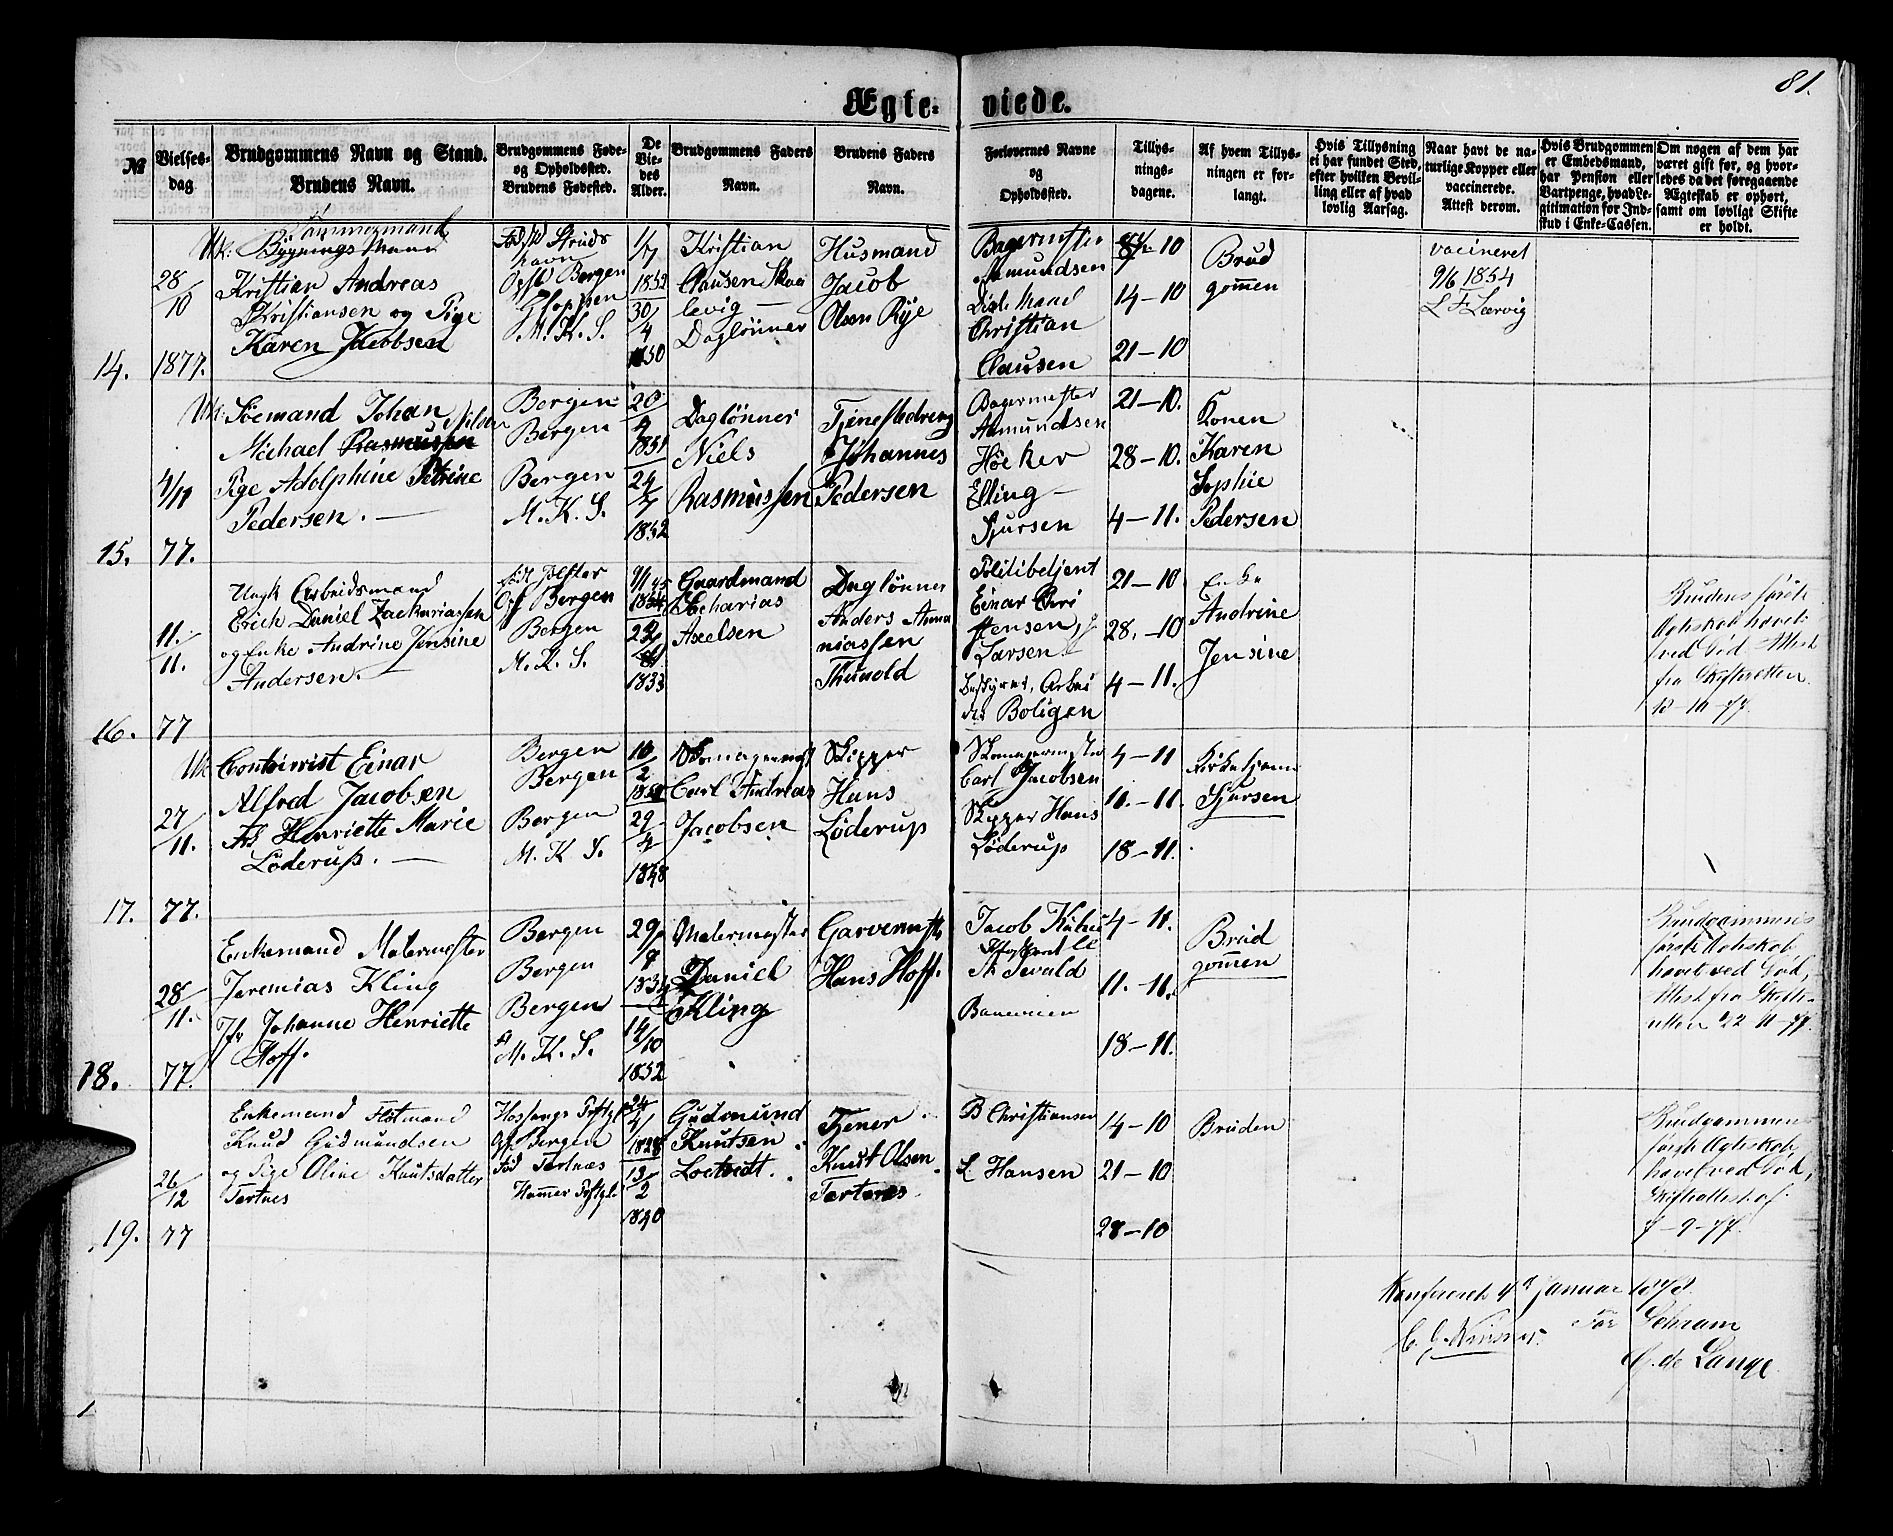 Ægte-viede.
81.
№
Vielses-dag
Brudgommens Navn og Stand.
Brudens Navn.
Brudgommens Føde-
og Opholdssted.
Brudens Fødested.
De
Vie-
des
Alder.
Brudgommens Faders
Navn.
Brudens Faders
Navn.
Forlovernes Navne
og
Opholdssted.
Tillys-
nings-
dagene.
Af hvem Tillys-
ningen er for-
langt.
Hvis Tillysning
ei har fundet Sted,
efter hvilken Bevil-
ling eller af hvad
lovlig Aarsag.
Naar havt de na-
turlige Kopper eller
vaccinerede.
Attest derom.
Hvis Brudgommen
er Embedsmand,
har Pension eller
Vartpenge, hvad Le-
gitimation for Ind-
skud i Enke-Cassen.
Om nogen af dem har
været gift før, og hvor-
ledes da det foregaaende
Ægteskab er ophørt,
samt om lovligt Skifte
er holdt.
14.
28/10
1877.
Tømmermand
Uk: Bygningsmand
Kristian Andreas
Kristiansen og Pige
Karen Jacobsen
Fødst Struds
havn
Opst Bergen
Gloppen
M. K. S.
1/7
1852
30/4
1850
Kristian
Clausen Skaa
levig —
Daglønner
Husmand
Jacob
Olsen Rye
Bagermester
Asmundsen
Christian
Clausen
14-10
21-10
Brud
gommen
vacineret
9/6 1854
L. F. Lærvig
15.
4/11
77.
Uk: Søemand Johan
Michael Rasmussen
Pige Adolphine Petrine
Pedersen. —
Bergen
Bergen
Bergen
M. K. S.
20/4
1851
24/7
1852
Daglønner
Niels
Rasmussen
Tjenestedreng
Johannes
Pedersen
Bagermester
Asmundsen
Høeker
Elling —
Sjursen
21-10.
28-10.
4-11.
Konen
Karen
Sophie
Pedersen
16.
11./11.
77
Ungk Arbeidsmand
Erich Daniel Zackariassen
og Enke Andrine Jensine
Andersen.
Født Jølster
Opst Bergen
Bergen
M. K. S.
1833
Gaardmand
Zacharias
Axelsen
Daglønner
Anders Anna
niassen
Thunold
Politibetjent
Einar Chri
stensen,
Larsen
Bestyrer, Arbei
der Boligen
21-10
28.-10
4-11.
Enke
Andrine
Jensine
Brudens første
Ægteskab hævet
ved Død Attest
fra Skifteretten
17.
27/11.
77.
Uk Contoirist Einar
Alfred Jacobsen
Henriette Marie
Løderup. —
Bergen
Bergen
Bergen
M. K S.
10/2
29/4
1848
Skomagermest
Carl Andreas
Jacobsen
Skipper
Hans
Løderup
Skomagermester
Carl Jacobsen
Skipper Hans
Løderup
4-11
11.-11.
18-11.
Kirketjener
Sjursen
18.
28/11.
77.
Enkemand Malermester
Jeremias Kling
Jfr Johanne Henriette
Hoff.
Bergen
Bergen
Bergen
M. K. S.
14/10
1852
Malermester
Daniel
Kling
Garvermst
Hans Hoff.
4-11.
11.-11.
18-11.
Brud
gommen
Brudgommens
første Ægteskab
hævet ved Død,
Attest fra Skifte-
retten 22-11-77.
19.
26/12
77
Enkemand Flotmand
Knud Gudmundsen
og Pige Oline Knutsdatter
Tertnes
Hossangs Prstgl
Opst Bergen
Fød Tertnæs
Hammer Prstgl.
1828
13/2
1840
Gudmund
Knutsen
Tjener
Knut Olsen
Tertnes
B Christiansen
L. Hansen
14-10
21-10
28-10
Bruden
Brudgommens
første Ægteskab,
hævet ved Død,
Skifteattest af
7-9-77.
Konfereret 4de Januar 1878.
For Schram
C. de Lange